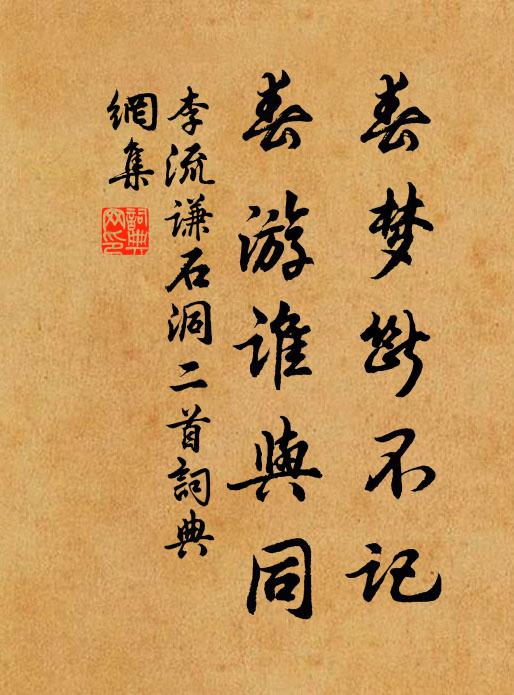 春梦断不记
春游谁與同
李流谦石洞二首詞典
網集
詞典
网印